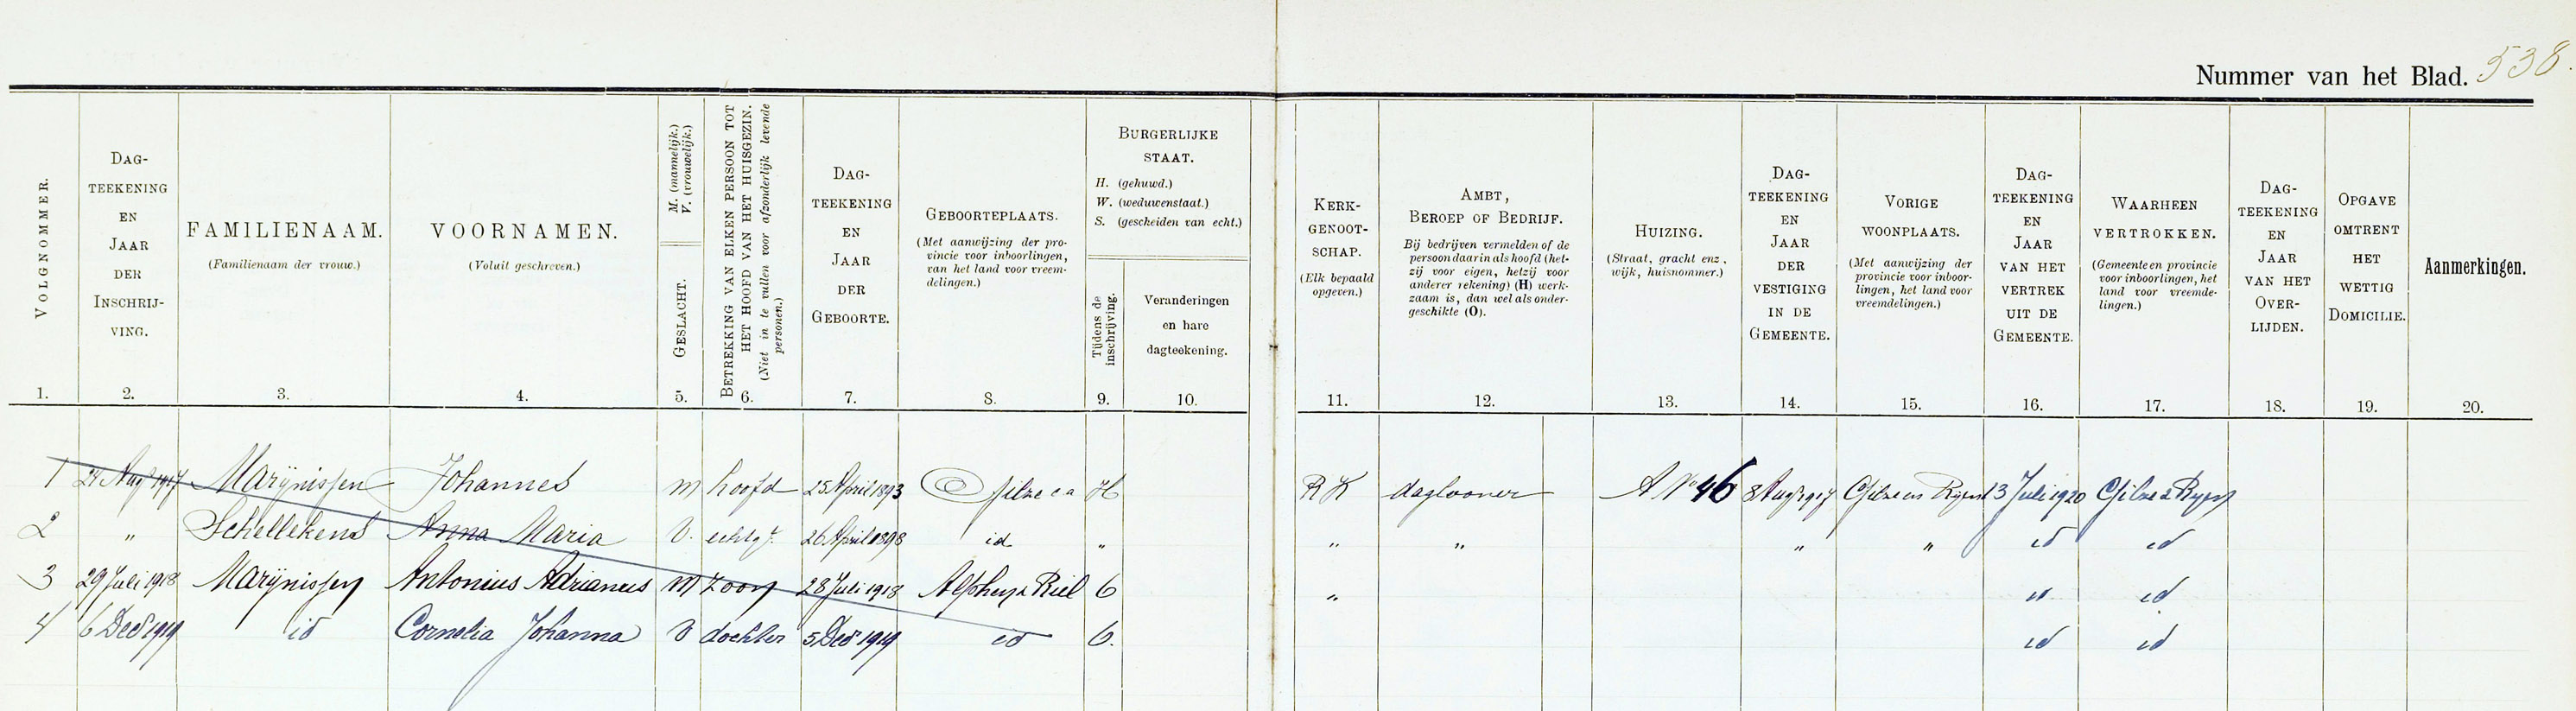 Nummer van het Blad. 538.
VOLGNOMMER.
1.
DAG-
TEEKENING
EN
JAAR
DER
INSCHRIJ-
VING.
2.
FAMILIENAAM.
(Familienaam der vrouw.)
3.
VOORNAMEN.
(Voluit geschreven.)
4.
M. (mannelijk.)
V. (vrouwelijk.)
GESLACHT.
5.
BETREKKING VAN ELKEN PERSOON TOT
HET HOOFD VAN HET HUISGEZIN.
(Niet in te vullen voor afzonderlijk levende
personen.)
6.
DAG-
TEEKENING
EN
JAAR
DER
GEBOORTE.
7.
GEBOORTEPLAATS.
(Met aanwijzing der pro-
vincie voor inboorlingen,
van het land voor vreem-
delingen.)
8.
BURGERLIJKE
STAAT.
H. (gehuwd.)
W. (weduwenstaat.)
S. (gescheiden van echt.)
Tijdens de
inschrijving.
9.
Veranderingen
en hare
dagteekening.
10.
KERK-
GENOOT-
SCHAP.
(Elk bepaald
opgeven.)
11.
AMBT,
BEROEP OF BEDRIJF.
Bij bedrijven vermelden of de
persoon daarin als hoofd (het-
zij voor eigen, hetzij voor
anderer rekening) (H) werk-
zaam is, dan wel als onder-
geschikte (O).
12.
HUIZING.
(Straat, gracht enz.,
wijk, huisnommer.)
13.
DAG-
TEEKENING
EN
JAAR
DER
VESTIGING
IN DE
GEMEENTE.
14.
VORIGE
WOONPLAATS.
(Met aanwijzing der
provincie voor inboor-
lingen, het land voor
vreemdelingen.)
15.
DAG-
TEEKENING
EN
JAAR
VAN HET
VERTREK
UIT DE
GEMEENTE.
16.
WAARHEEN
VERTROKKEN.
(Gemeente en provincie
voor inboorlingen, het
land voor vreemde-
lingen.)
17.
DAG-
TEEKENING
EN
JAAR
VAN HET
OVER-
LIJDEN.
18.
OPGAVE
OMTRENT
HET
WETTIG
DOMICILIE.
19.
Aanmerkingen.
20.
1 Aug 1917 Marijnissen Johannes m hoofd 25 April 1893 Gilze ca H R K daglooner A No 46 8 Aug 1917 Gilze en Ryen 13 Juli 1920 Gilze & Ryen
2 " Schellekens Anna Maria V. echtgt. 26 April 1898 id " " " " " id id
3 29 Juli 1918 Marijnissen Antonius Adrianus m zoon 28 Juli 1918 Alphen & Riel 6 " " id
4 6 Dec 1919 id Cornelia Johanna V dochter 5 Dec 1919 id 6. id id